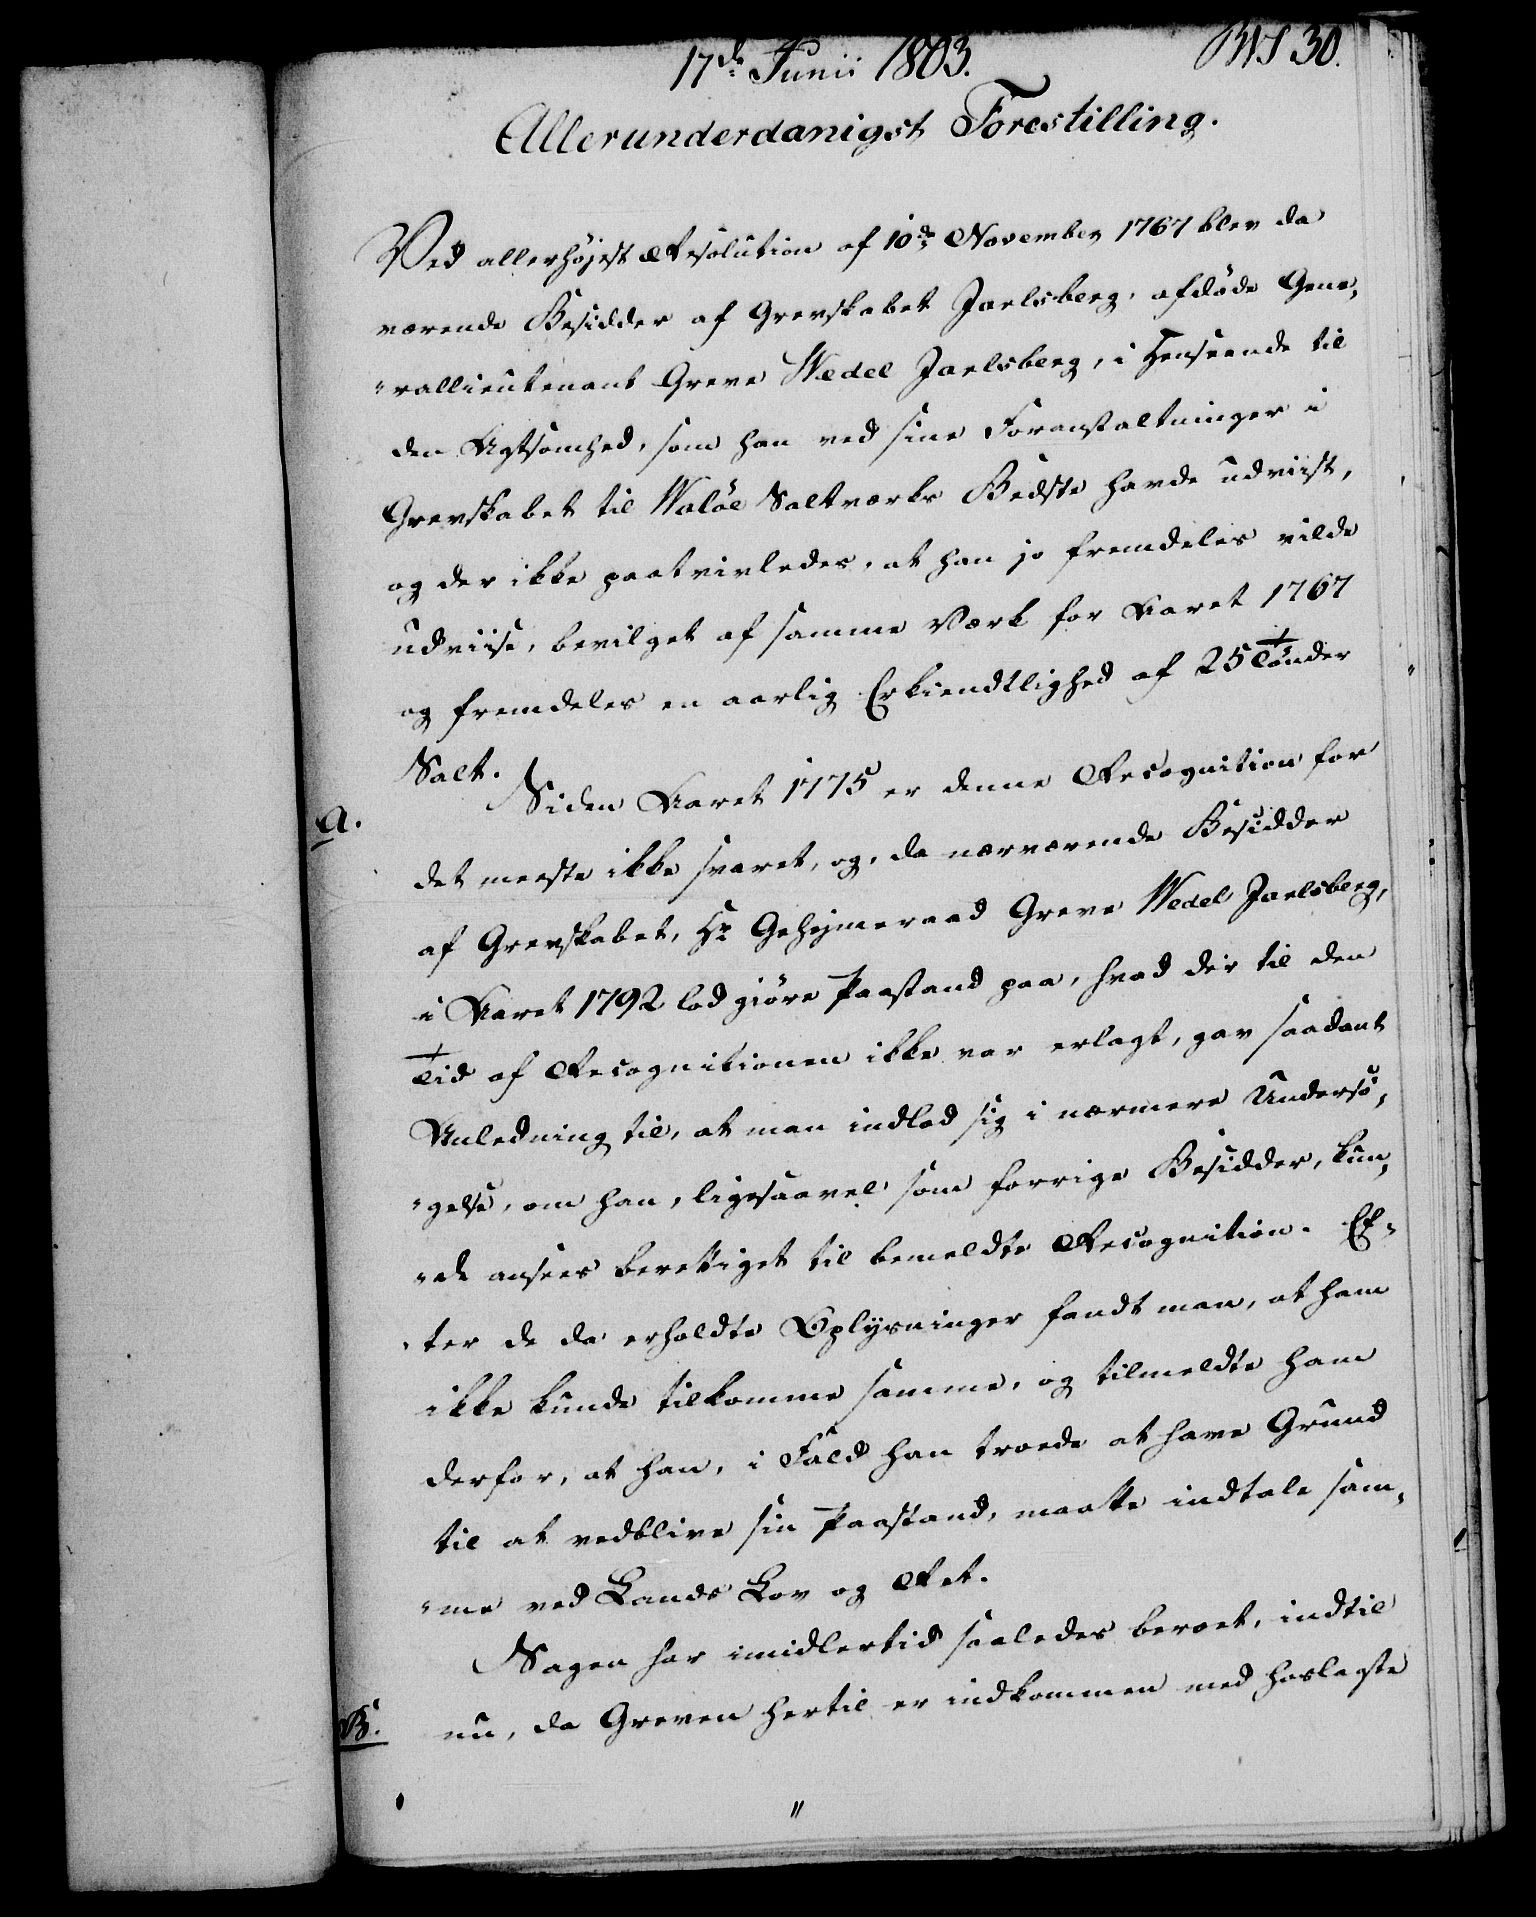 17de Junii 1803.
30.
Allerunderdanigst Forestilling.
Ved allerhöjest Resolution af 10de November 1767 blev da
værende Besidder af Grevskabet Jarlsberg, afdöde Gene,
"rallieutenant Greve Wedel Jarlsberg, i Henseende til
den Agtsomhed, som han ved sine Foranstaltninger i
Grevskabet til Waløe Saltværks Bedste havde udviist,
og der ikke paatvivledes, at han jo fremdeles vilde
udviise, bevilget af samme Værk for Aaret 1767
og fremdeles en aarlig Erkiendtlighed af 25 Tönder
Salt.
Siden Aaret 1775 er denne Recognition for
a.
det meeste ikke svaret, og, da nærværende Besidder
af Grevskabet, Hr Gehejmeraad Greve Wedel Jarlsberg,
i Aaret 1792 lod giöre Paastand paa, hvad der til den
Tid af Recognitionen ikke var erlagt, gav saadant
Anledning til, at man indlod sig i nærmere Undersö,
"gelse, om han, ligesaavel som forrige Besidder, kun,
"de ansees berettiget til bemeldte Recognition. Ef,
"ter de da erholdte Oplysninger fandt man, at ham
ikke kunde tilkomme samme, og tilmeldte ham
derfor, at han, i Fald han troede at have Grund
til at vedblive sin Paastand, maatte indtale sam,
"me ved Lands Lov og Ret.
Sagen har imidlertid saaledes beroet, indtil
B.
nu, da Greven hertil er indkommen med hoslagte
"